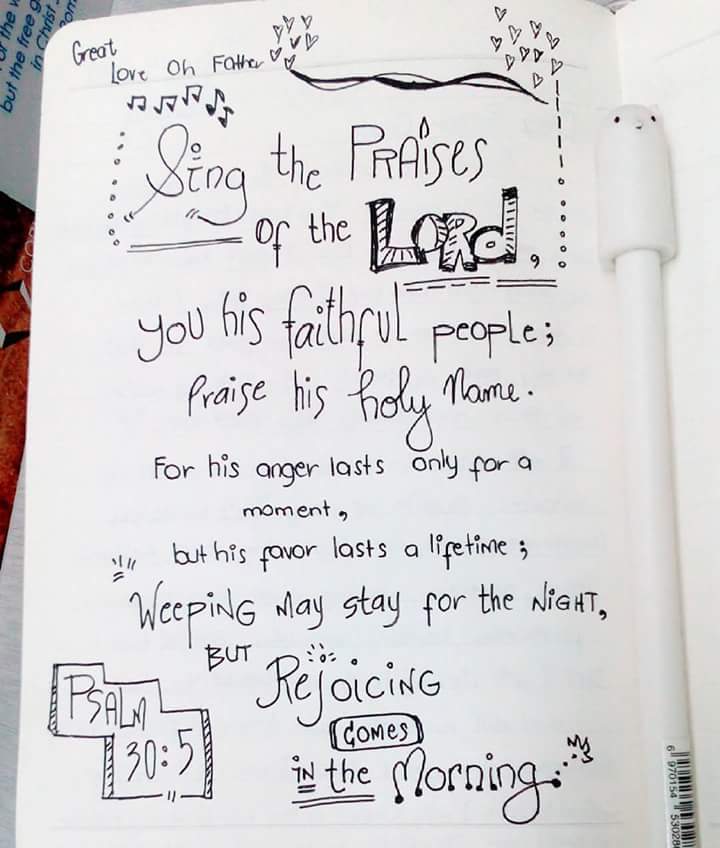 Great
Love Oh Father
Sing the PRAiSES
of the LORd,
you his faithful people;
Praise his holy Name.
For his anger lasts only for a
moment,
but his favor lasts a lifetime;
WEEPiNG May stay for the NiGHT,
BUT REJOICING
COMES
iN the Morning
PSALM
30:5
or the w
but the free g
in Christ J
6 970154 53028